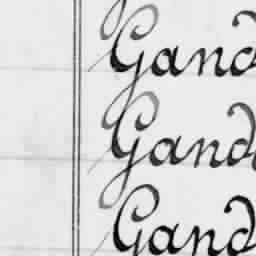 Gand
Gand
Gand